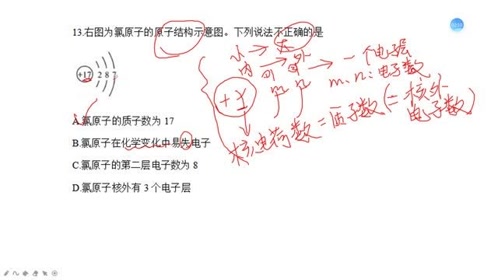 13.右图为氯原子的原子结构示意图。下列说法不正确的是
+17 2 8 7
A.氯原子的质子数为 17
B.氯原子在化学变化中易失电子
C.氯原子的第二层电子数为 8
D.氯原子核外有 3 个电子层
小 → 大
内 → 外
→ 一个电子层
m、n:电子数
+x
核电荷数=质子数(=核外
电子数)